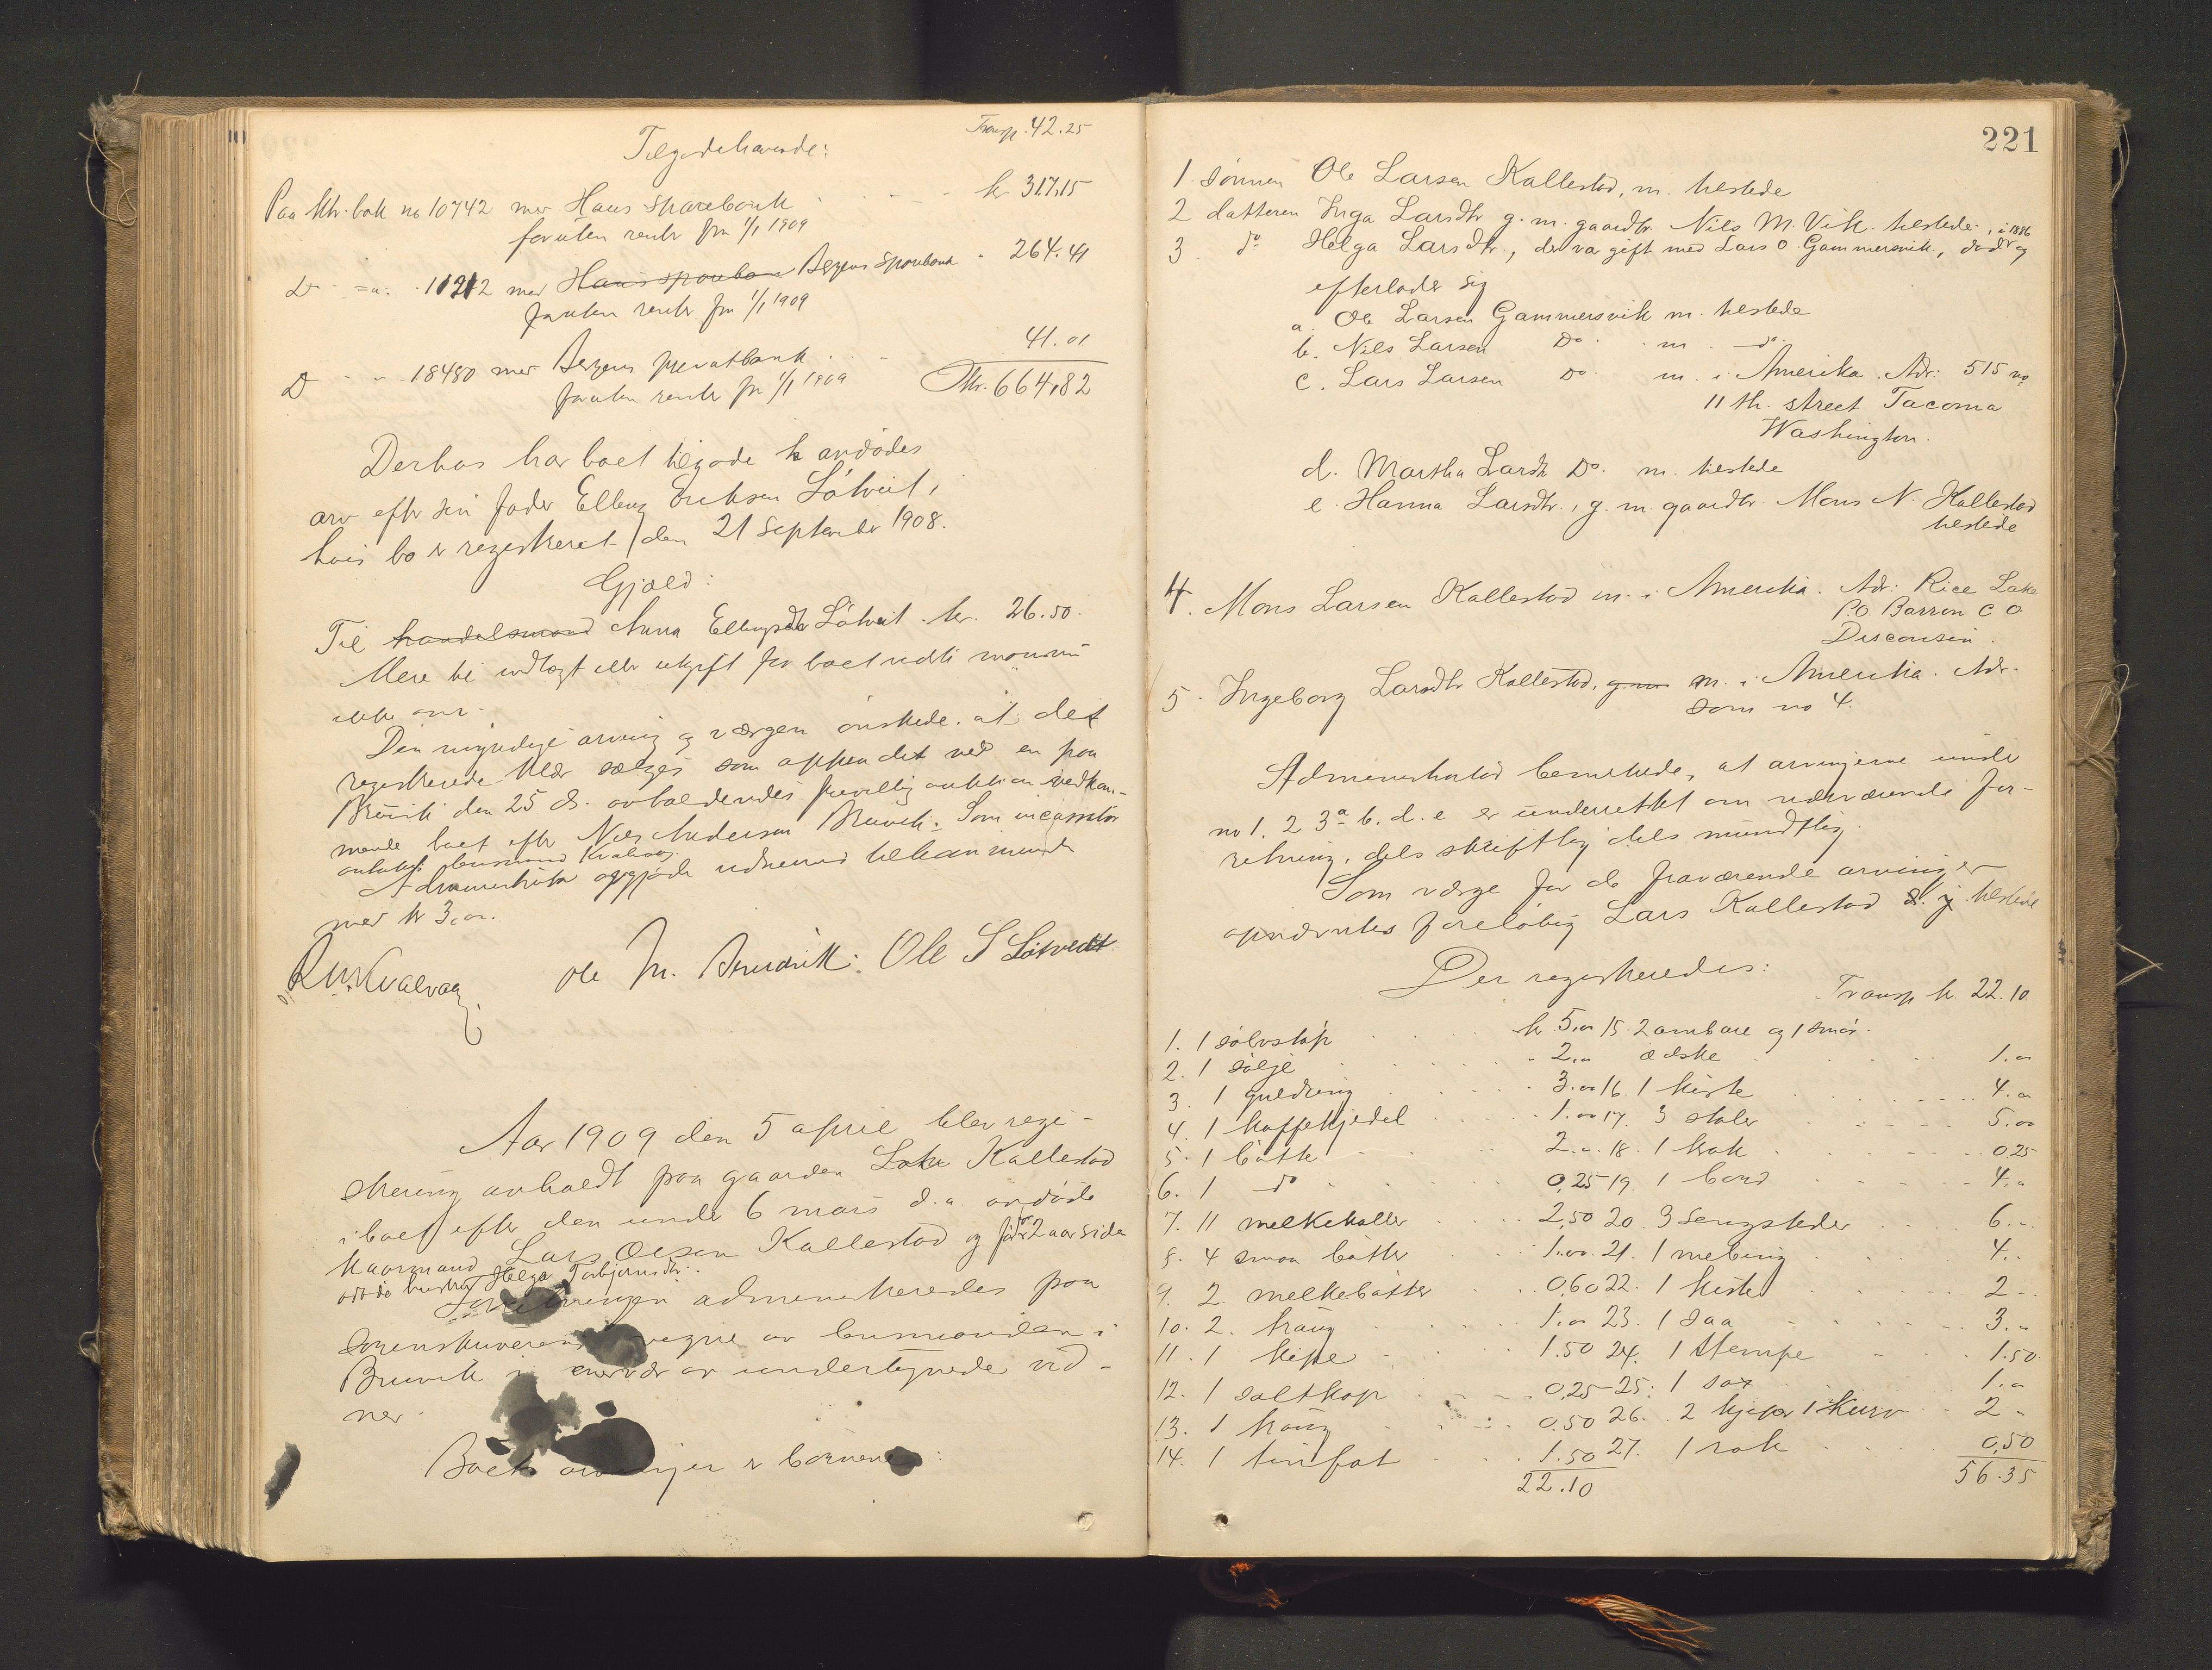 Transp. 42.25
Tilgodehavende:
Paa ktr.bok no 10742 med Haus Sparebank kr 317,15
foruten renter fra 1/1 1909
D 11212 med Haus sparebank Bergens Sparebank 264.41
foruten renter fra 1/1 1909
41.01
D 18480 med Bergens privatbank
foruten renter fra 1/1 1909 Kr. 664,82
Derhos har boet tilgode avdødes
arv efter sin fader Elling Eriksen Låtveit,
hvis bo er registreret den 21 September 1908.
Gjæld:
Til handelsmand Anna Ellingsdtr Låtveit kr. 26.50.
Mere til indtægt eller utgift for boet vedste man
ikke
Den myndige arving og værgen ønskede at det
registrerede klær sælges som oppendet ved en paa
Bruvik den 25 ds. avholdendes frivillig auktion vedkom-
mende boet efter Nils Andersen Bruvik. Som incassator
antokes lensmand Kvalvaag.
Administrator opgjorde
med kr 3,00.
Kvalvaag Ole M. Bruvik. Ole S Låtvedt
Aar 1909 den 5 april blev regi-
strering avholdt paa gaarden Kallestad
i boet efter den under 6 mars d.a. avdøde
kaarmand Lars Olsen Kallestad og før 2 aar siden
døde hustru Helga Torbjørnsdtr.
Forretningen administreredes paa
Sorenskriverens vegne av lensmanden i
Bruvik i nærvær av undertegnede vid-
ner.
Boets arvinger er børnene:
221
1 sønnen Ole Larsen Kallestad, m. tilstede
2 datteren Inga Larsdtr g.m. gaardbr. Nils M. Vik tilstede, i 1886
3 do Helga Larsdtr., der va gift med Lars O. Gammersvik, død og
efterlader sig
a. Ole Larsen Gammersvik m. tilstede
b. Nils Larsen Do m. do
c. Lars Larsen Do m. i Amerika. Adr: 515 no
11 th. street Tacoma
Washington.
d. Martha Larsdtr Do. m. tilstede
e. Hanna Larsdtr., g.m. gaardbr. Mons N. Kallestad
tilstede
4. Mons Larsen Kallestad m. i Amerika. Adr: Rice Lake
P.O. Barron C O
Disconsin.
5. Ingeborg Larsdtr Kallestad, g.m. m. i Amerika. Adr.
som no 4.
Administrator bemerkede, at arvingerne under
no 1. 2 3 a b. d. e er underrettet om nærværende for-
retning, dels skriftlig dels mundtlig.
Som værge for de fraværende arvinger
opnævntes foreløbig Lars Kallestad tilstede
Der registreredes:
Transp kr. 22.10
1. 1 sølvstøp kr 5,00 15. 2 ambare og 1 smør-
2. 1 sølje 2.00 æske 1.00
3. 1 guldring 3.00 16. 1 kiste 4.00
4. 1 kaffekjedel 1.00 17. 3 stoler 5.00
5. 1 bøtte 2.00 18. 1 krak 0,25
6. 1 do 0,25 19. 1 bord 4.00
7. 11 melkekoller 2,50 20. 3 Sengsteder 6.00
8. 4 smaa bøtter 1.00 21. 1 mebing 4.
9. 2. melkebøtter 0,60 22. 1 kiste 2
10. 2. krang 1.00 23. 1 saa 3.00
11. 1 kipe 1.50 24. 1 Stempe 1.50.
12. 1 saltkop 0,25 25. 1 sax 1.00
13. 1 krang 0.50 26. 2 kjeper 1 kurv 2
14. 1 tinfat 1.50 27. 1 rok 0,50
22.10 56.35